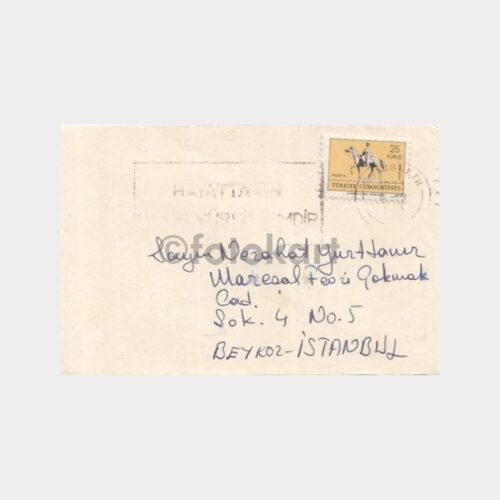 25
KURUŞ
POSTA
TÜRKİYE CUMHURİYETİ
HAYATTA EN
©fotokart
Sayın Nezahat Yurttanır
Mareşal Fevzi Çakmak
Cad.
Sok. 4 No. 5
BEYKOZ-İSTANBUL